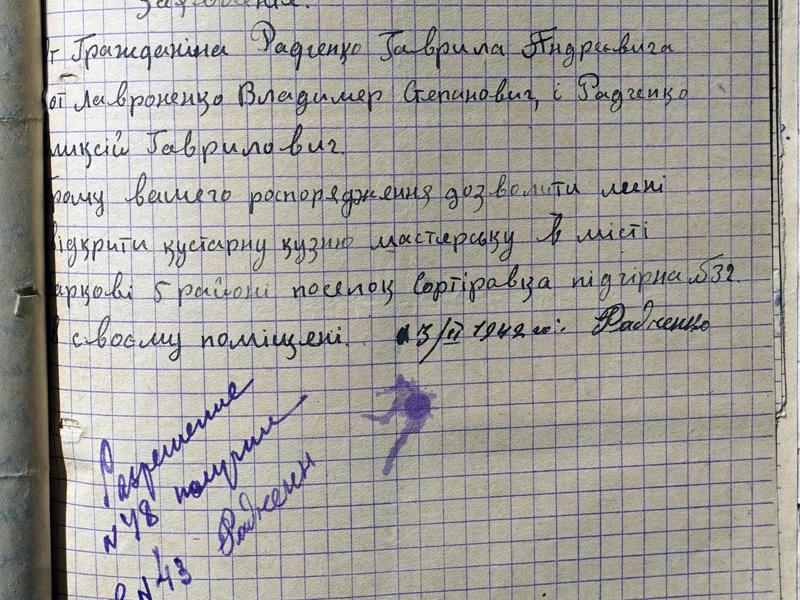 Гражданіна Радченко Гаврила Андреєвича
Лавроненко Владимер Степанович, і Радченко
ликсій Гаврилович.
вашего роспорядження дозволити мені
відкрити кустарну кузню мастєрську в місті
аркові 5 районі посьолок Сортіравка підгірна №32.
своєму поміщені. 13/II 1942 го: Радченко
Разрешение
№48 получил
Радченк
№43